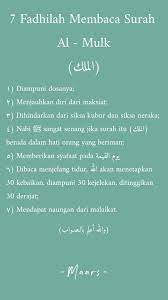 7 Fadhilah Membaca Surah
Al - Mulk
(الملك)
١) Diampuni dosanya;
٢) Menjauhkan diri dari maksiat;
٣) Dihindarkan dari siksa kubur dan siksa neraka;
٤) Nabi ﷺ sangat senang jika surah itu (الملك)
berada dalam hati orang yang beriman;
٥) Memberikan syafaat pada يوم القيمة
٦) Dibaca menjelang tidur, الله akan menetapkan
30 kebaikan, diampuni 30 kejelekan, ditinggikan
30 derajat;
٧) Mendapat naungan dari malaikat.
(والله أعلم بالصواب)
- Maars -